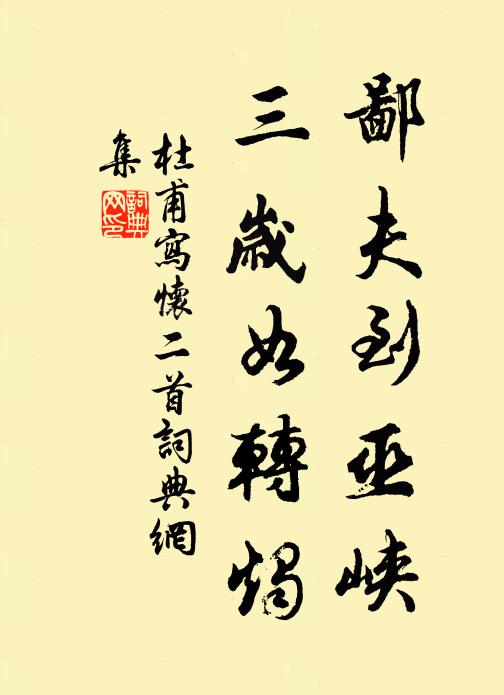 鄙夫到巫峽
三歲如轉燭
杜甫寫懷二首詞典網
集
詞典
网印